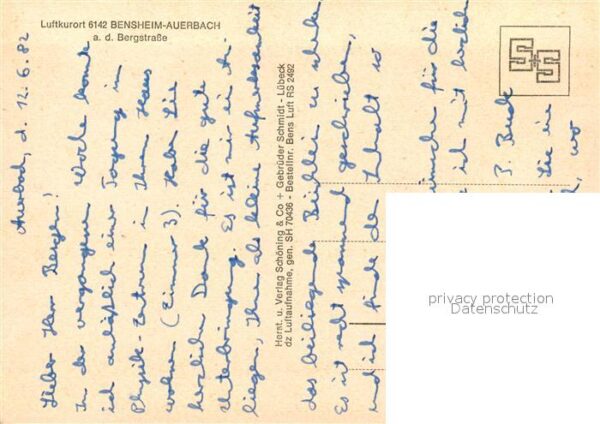 Luftkurort 6142 BENSHEIM-AUERBACH
a. d. Bergstraße
Auerbach, d. 12.6.82
Lieber Herr Bergen!
In der vergangenen Woche konnte
ich anläßlich einer Tagung im
Physik-Zentrum in Ihrem Haus
wohnen (Zimmer 3). Haben Sie
herzlichen Dank für die gute
Unterbringung. Es ist mir ein An-
liegen, Ihnen als kleine Aufmerksamkeit
das beiliegende Büchlein zu
Es ist recht spannend geschrieben,
und ich finde der Inhalt so
Horst. u. Verlag Schöning & Co + Gebrüder Schmidt - Lübeck
dz Luftaufnahme, gen. SH 70436 - Bestellnr. Bens Luft RS 2492
für die
ich mit
P.
Sie ein
wo
privacy protection
Datenschutz